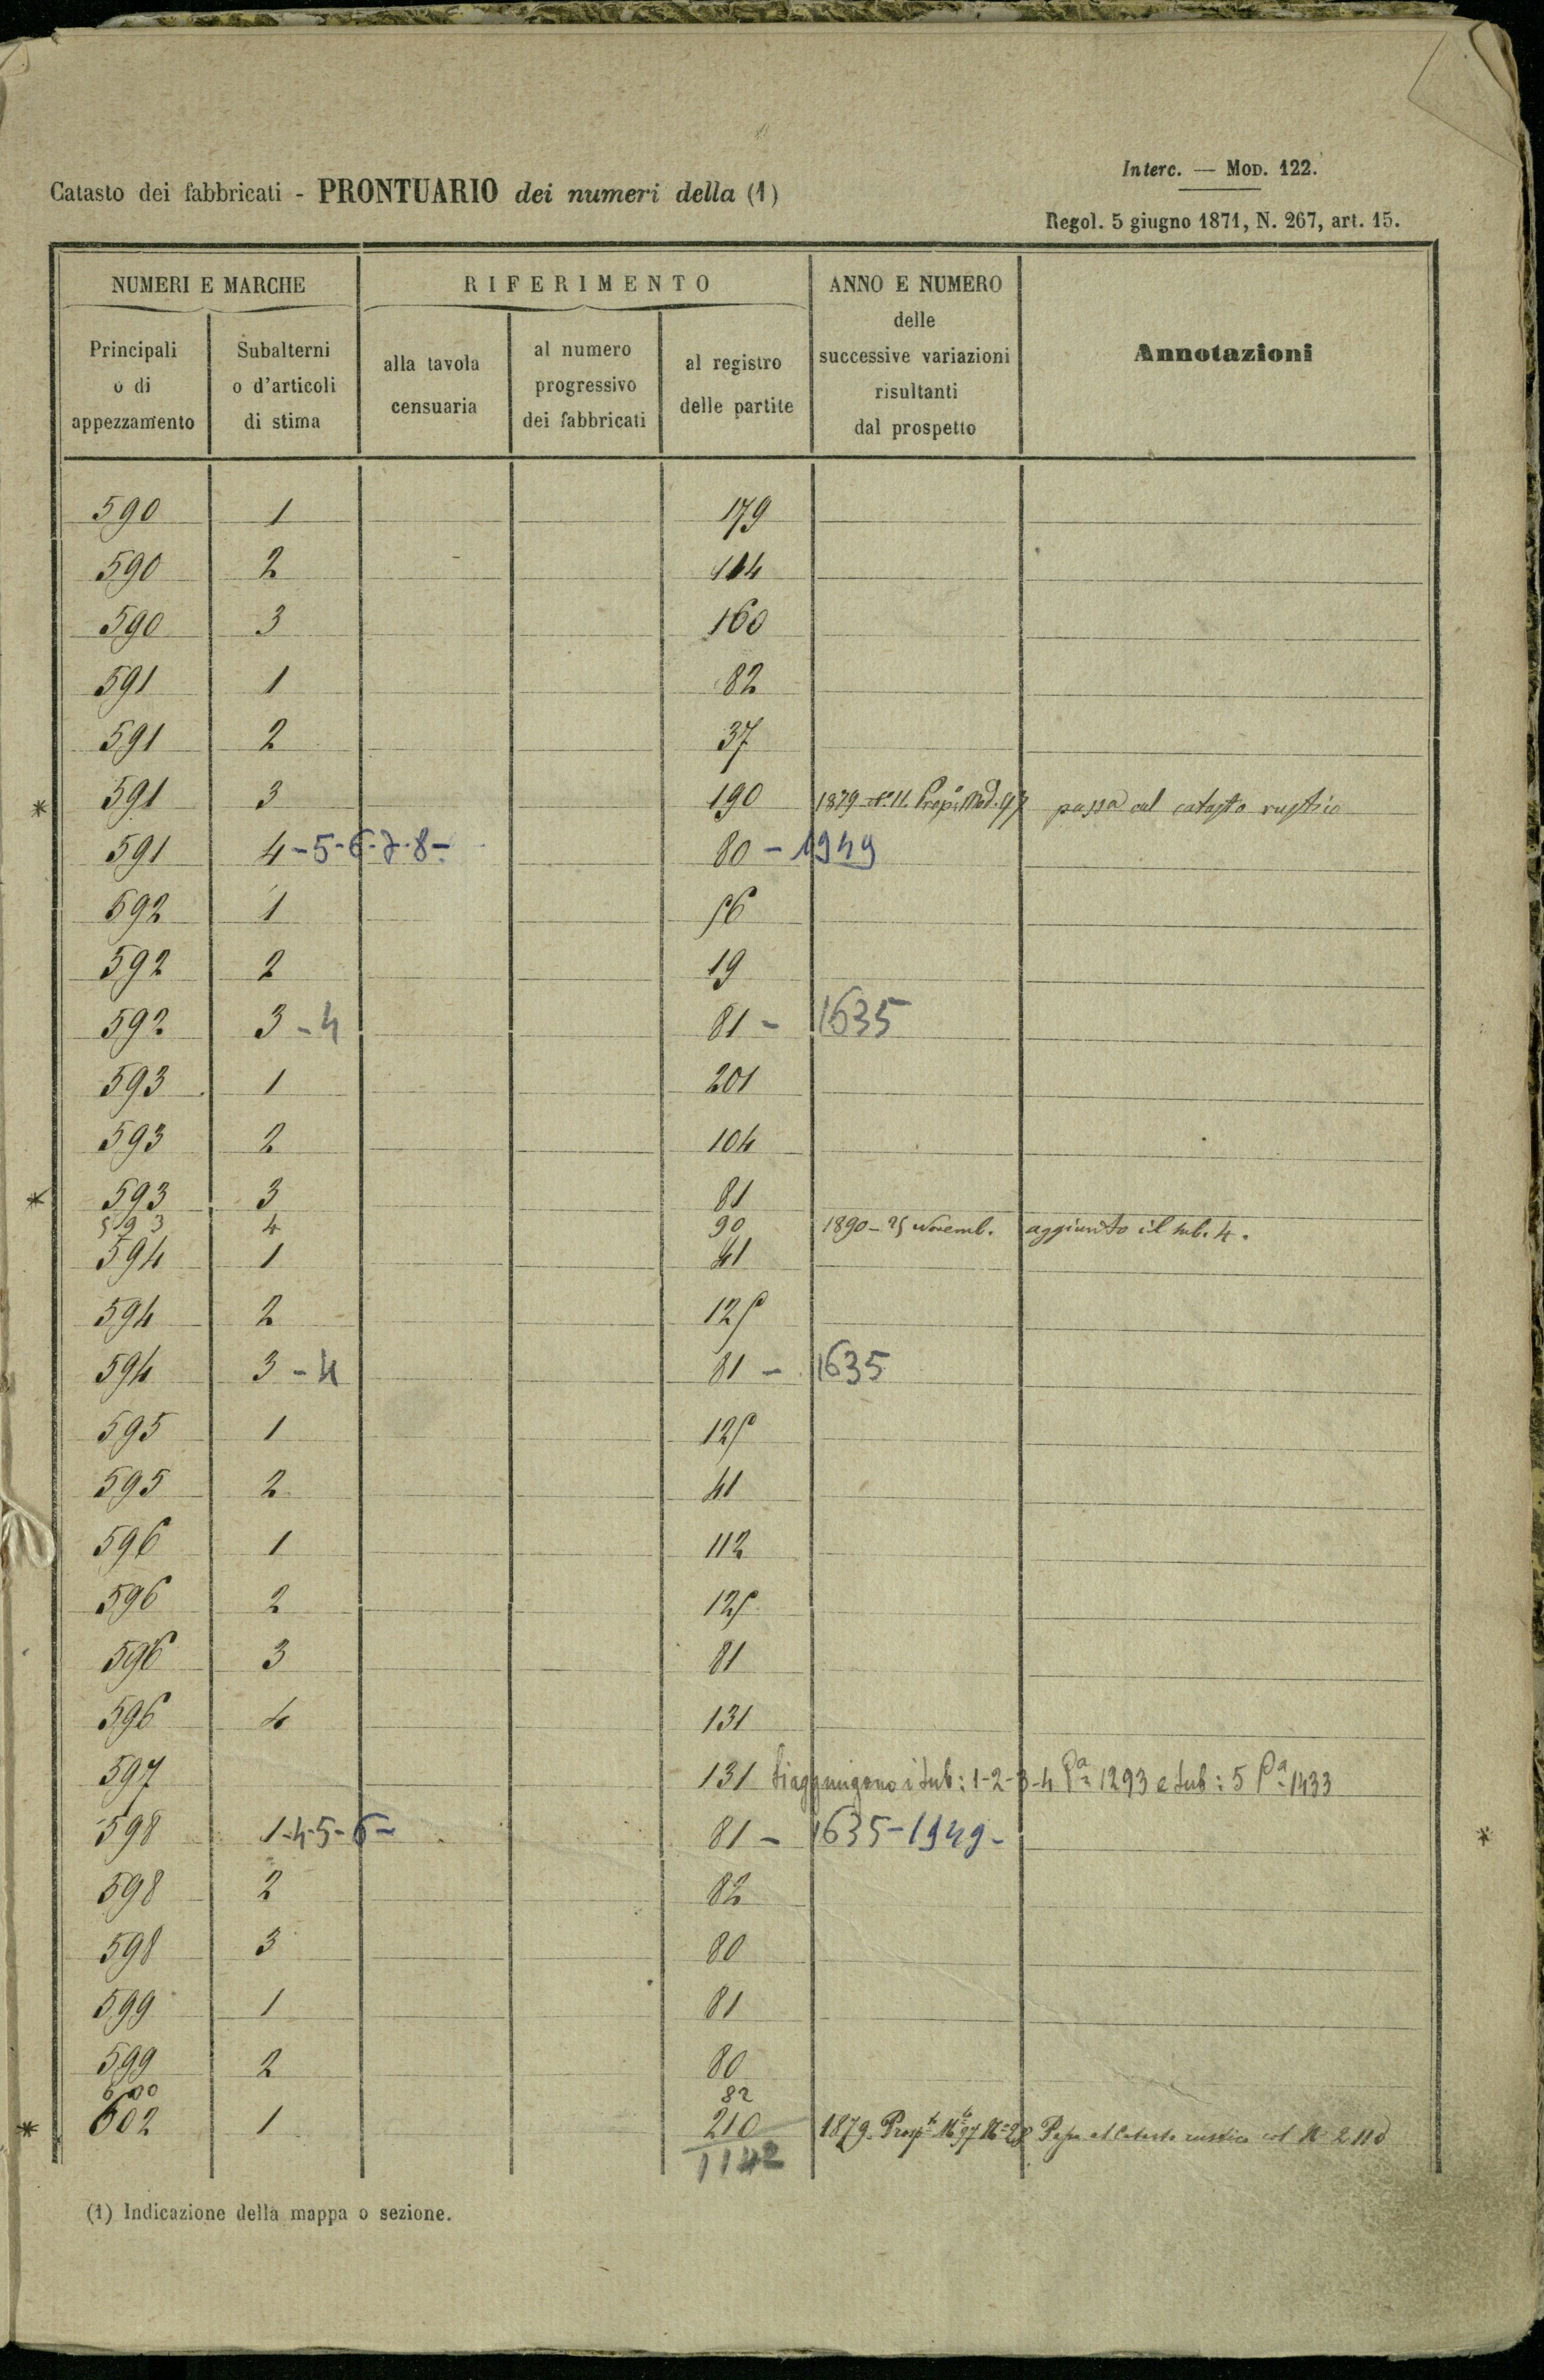 Interc. — Mod. 122.
Catasto dei fabbricati - PRONTUARIO dei numeri della (1)
Regol. 5 giugno 1871, N. 267, art. 15.
NUMERI E MARCHE
RIFERIMENTO
ANNO E NUMERO
delle
successive variazioni
risultanti
dal prospetto
Annotazioni
Principali
o di
appezzamento
Subalterni
o d'articoli
di stima
alla tavola
censuaria
al numero
progressivo
dei fabbricati
al registro
delle partite
590 1 179
590 2 114
590 3 160
591 1 82
591 2 37
* 591 3 190 1879 N. 11 Prop. Mod. 97 passa al catasto rustico
591 4-5-6-7-8- 80 - 1949
592 1 56
592 2 19
592 3-4 81 - 1635
593 1 201
593 2 104
* 593 3 81
593 4 90 1890 - 25 Novemb. aggiunto il sub. 4.
594 1 41
594 2 125
594 3-4 81 - 1635
595 1 125
595 2 41
596 1 112
596 2 125
596 3 81
596 4 131
597 131 Si aggiungono i sub: 1-2-3-4 Pa 1293 e sub: 5 Pa 1433
598 1-4-5-6- 81 - 1635-1949- *
598 2 82
598 3 80
599 1 81
599 2 80
600 82
* 602 1 210 1879. Prosp. Mo 97 No 28 Passa al Catasto rustico col N 2110
1142
(1) Indicazione della mappa o sezione.